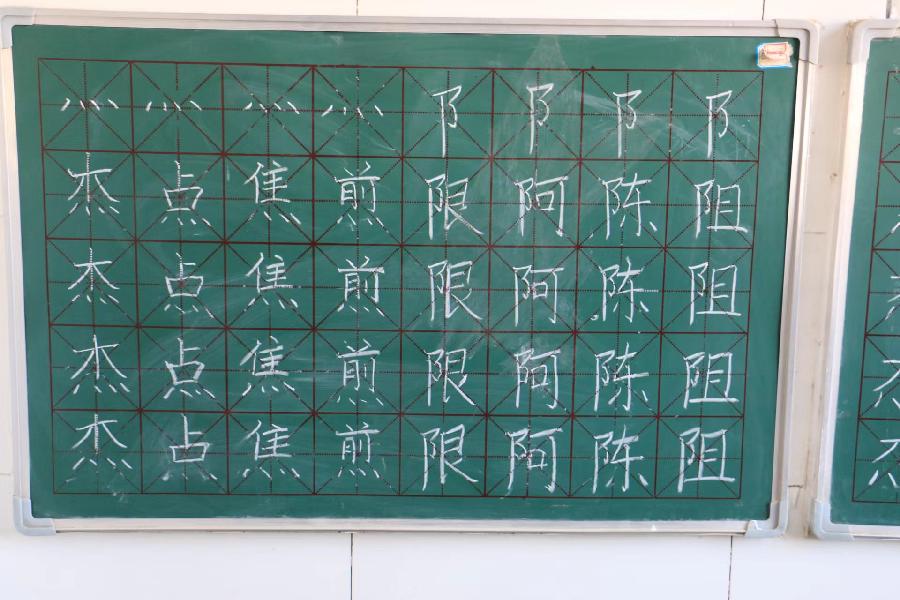 灬 灬 灬 灬 阝 阝 阝 阝
杰 点 焦 煎 限 阿 陈 阻
杰 点 焦 煎 限 阿 陈 阻
杰 点 焦 煎 限 阿 陈 阻
杰 点 焦 煎 限 阿 陈 阻